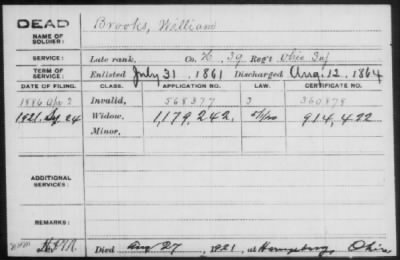 DEAD
NAME OF SOLDIER: Brooks, William
SERVICE: Late rank, Co. K, 39 Reg't Ohio Inf
TERM OF SERVICE: Enlisted July 31, 1861 Discharged Aug. 12, 1864
DATE OF FILING. CLASS. APPLICATION NO. LAW. CERTIFICATE NO.
1886 Apr 2 Invalid, 568377 J 360878
1921. Sep 24 Widow, 1,179,242. 914,422
Minor,
ADDITIONAL SERVICES:
REMARKS:
Died Aug 27, 1921, at Ohio